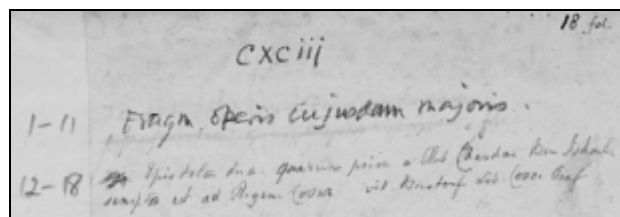 18 fol.
CXCiij
1-11 Fragm. operis cujusdam majoris.
12-18 Epistolae duae quarum prior a Rab Chasdai
scripta est ad Regem Cosar vid. Buxtorf Lib. Cosri Praef